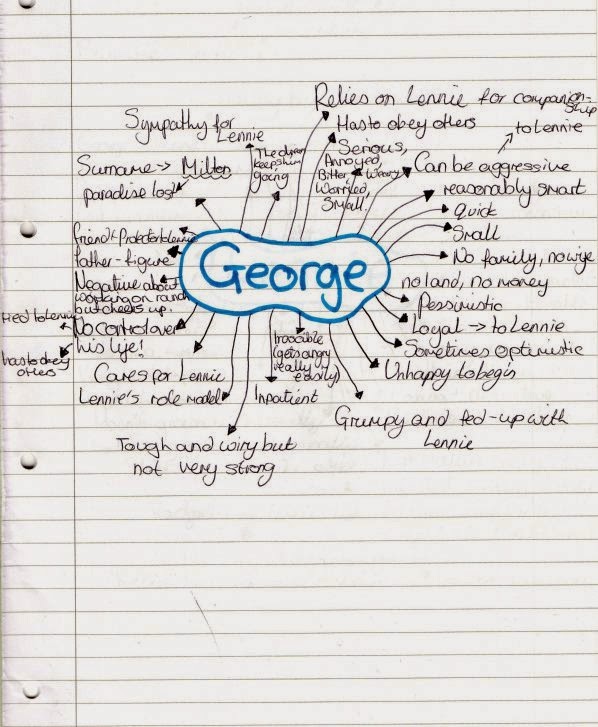 George
Relies on Lennie for companion-
ship
Has to obey others
Serious,
Annoyed,
Bitter, Weary
Worried,
Small,
Can be aggressive
to Lennie
reasonably smart
Quick
Small
No family, no wife
no land, no money
Pessimistic
Loyal → to Lennie
Sometimes optimistic
Unhappy to begin
Grumpy and fed-up with
Lennie
Irascible
(gets angry
really
easily)
Inpatient
Tough and wiry but
not very strong
Lennie's role model
Cares for Lennie
No control over
his life!
Tied to Lennie
has to obey
others
Negative about
working on ranch
but cheers up!
friend + Protector to Lennie
father-figure
Surname → Milton
paradise lost
Sympathy for
Lennie
The dream
keeps him
going